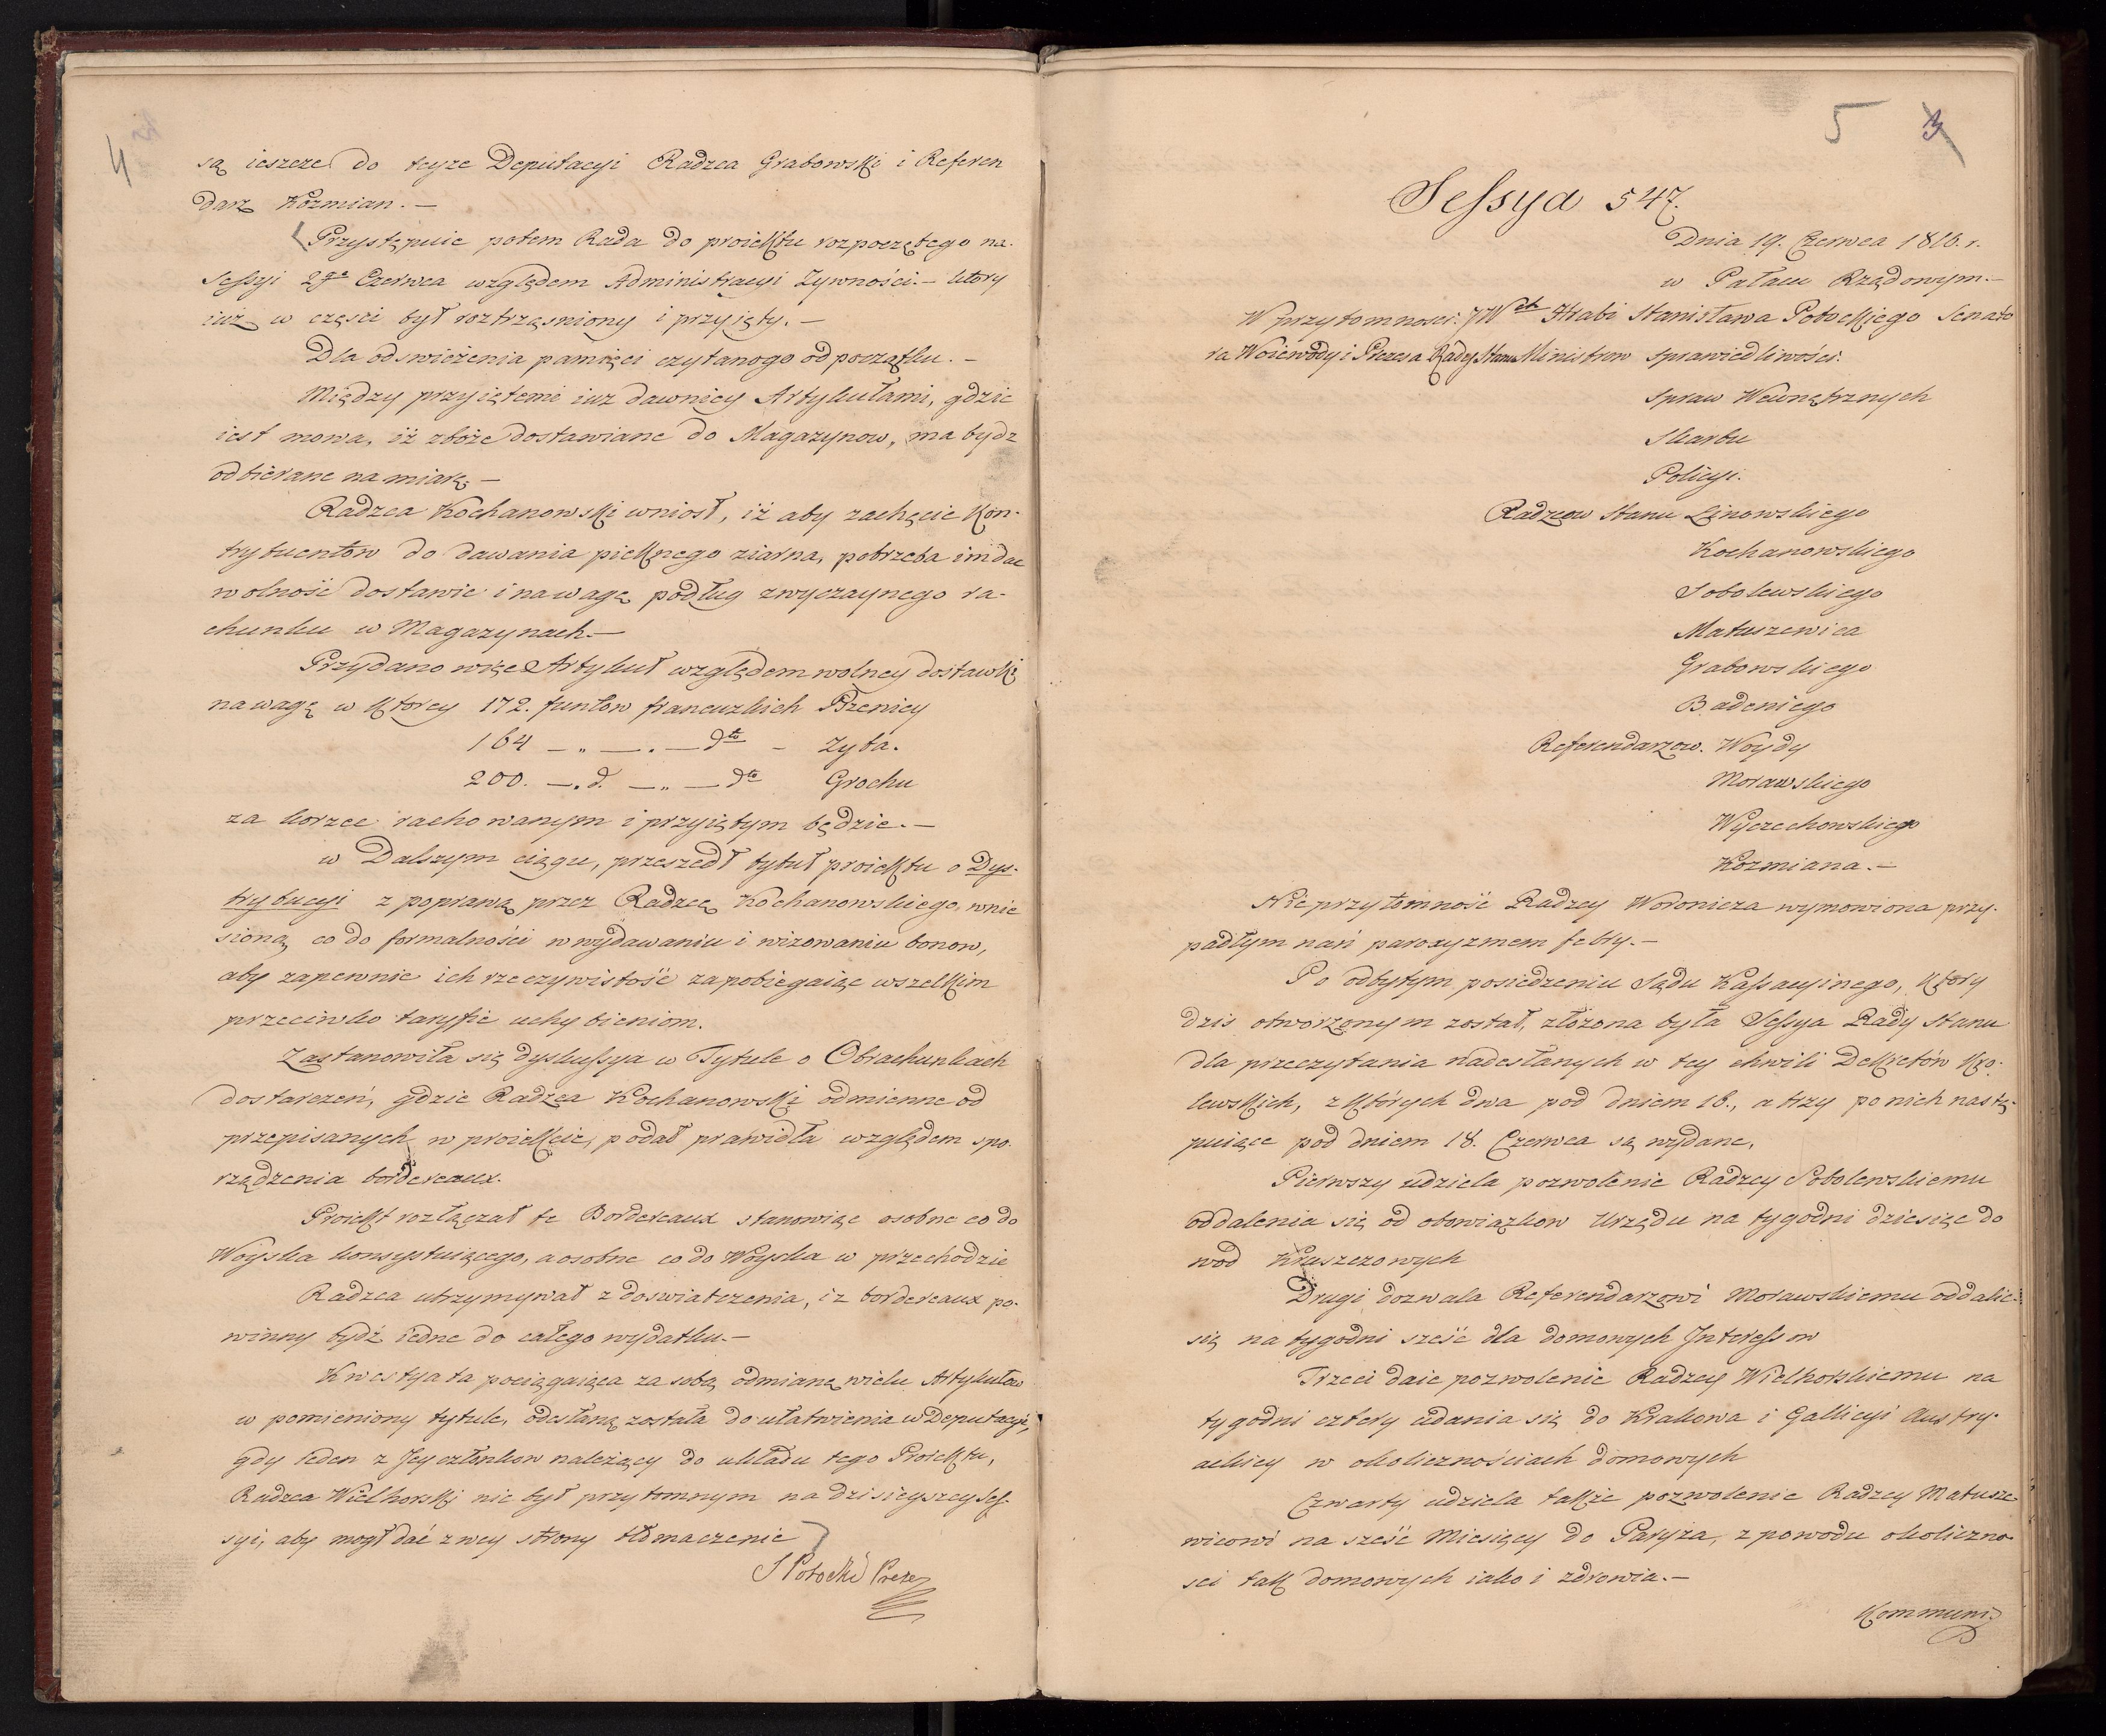 4
są ieszcze do teyze Deputacyi Radzca Grabowski i Referen
darz Kozmian. —
Przystępuie potem Rada do proiektu rozpoczętego na
Sessyi 2go Czerwca względem Administracyi Zywności. — ktory
iuz w części był roztrząsniony i przyięty. —
Dla odswieżenia pamięci czytanogo od początku. —
Między przyiętemi iuz dawniey Artykułami, gdzie
iest mowa, iż zboże dostawiane do Magazynow, ma bydz
odbierane na miarę. —
Radzca Kochanowski wniosł, iż aby zachęcic Kon-
trybuentow do dawania pięknego ziarna, potrzeba im dac
wolność dostawic i na wagę podług zwyczaynego ra-
chunku w Magazynach. —
Przydano więc Artykuł względem wolney dostawki
na wagę w ktorey 172. funtow francuzkich Pszenicy
164 — „ — . — dto — Zyta.
200. — . d. — „ — dto Grochu
za korzec rachowanym i przyiętym będzie. —
w Dalszym ciągu, przeszedł tytuł proiektu o Dys-
trybucyi z poprawą przez Radzcę Kochanowskiego, wnie
sioną co do formalności w wydawaniu i wizowaniu bonow,
aby zapewnic ich rzeczywistość zapobiegaiąc wszelkim
przeciwko taryfie uchybieniom.
Zastanowiła się dyskussya w Tytule o Obrachunkach
dostarczeń, gdzie Radzca Kochanowski odmienne od
przepisanych w proiekcie, podał prawidła względem spo-
rządzenia bordereaux.
Proiekt rozłączał te Bordereaux stanowiąc osobne co do
Woyska konsystuiącego, a osobne co do Woyska w przechodzie
Radzca utrzymywał z doswiatczenia, iz bordereaux po-
winny bydź iedne do całego wydatku. —
Kwestya ta pociągaiąca za sobą odmianę wielu Artykułow
w pomieniony tytule, odesłaną została do ułatwienia w Deputacyi,
gdy ieden z Jey członkow należący do układu tego Proiektu,
Radzca Wielhorski nie był przytomnym na dzisieyszey Ses-
syi, aby mogł dać z swey strony tłomaczenie
S Potocki Prezes
5 3
Sessya 547.
Dnia 19. Czerwca 1810. r.
w Pałacu Rządowym. —
W przytomności JWch Hrabi Stanisława Potockiego Senato
ra Woiewody i Prezesa Rady Stanu Ministrow Sprawiedliwości.
Spraw Wewnętrznych
Skarbu
Policyi.
Radzcow Stanu Linowskiego
Kochanowskiego
Sobolewskiego
Matuszewica
Grabowskiego
Badeniego
Referendarzow. Woydy
Morawskiego
Wyczechowskiego
Kozmiana. —
Nieprzytomność Radzcy Woronicza wymowiona przy-
padłym nań paroxyzmem febry. —
Po odbytym posiedzeniu Sądu Kassacyinego, ktory
dzis otworzonym został, złożona była Sessya Rady Stanu
dla przeczytania nadesłanych w tey chwili Dekretów Kro-
lewskich, z których dwa pod dniem 16., a trzy po nich nastę-
puiące pod dniem 18. Czerwca są wydane.
Pierwszy udziela pozwolenie Radzcy Sobolewskiemu
oddalenia się od obowiązkow Urzędu na tygodni dziesięc do
wod Kruszczowych
Drugi dozwala Referendarzowi Morawskiemu oddalic
się na tygodni sześć dla domowych Interessow
Trzeci daie pozwolenie Radzcy Wielhorskiemu na
tygodni cztery udania się do Krakowa i Gallicyi Austry-
ackiey w okolicznościach domowych
Czwarty udziela także pozwolenie Radzcy Matusze-
wicowi na sześć Miesięcy do Paryża, z powodu okoliczno-
sci tak domowych iako i zdrowia. —
Kommuni